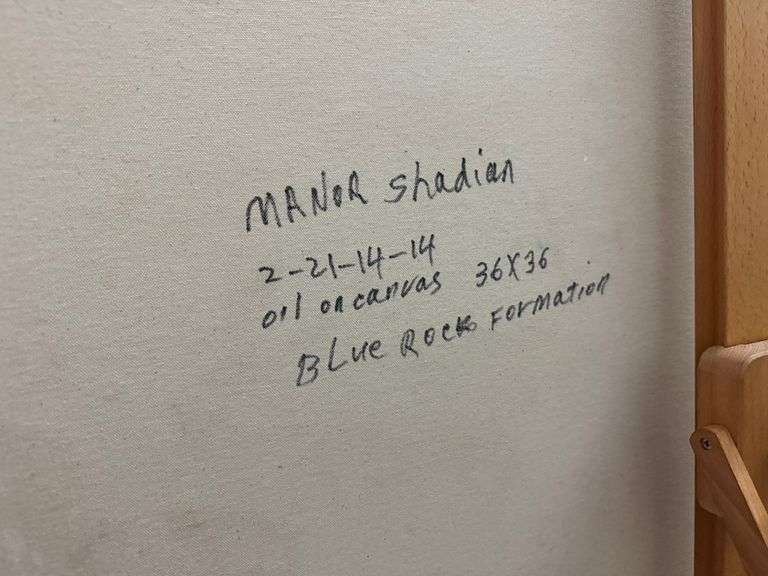 MANOR Shadian
2-21-14-14
oil on canvas 36X36
BLUe ROCK FORMATION